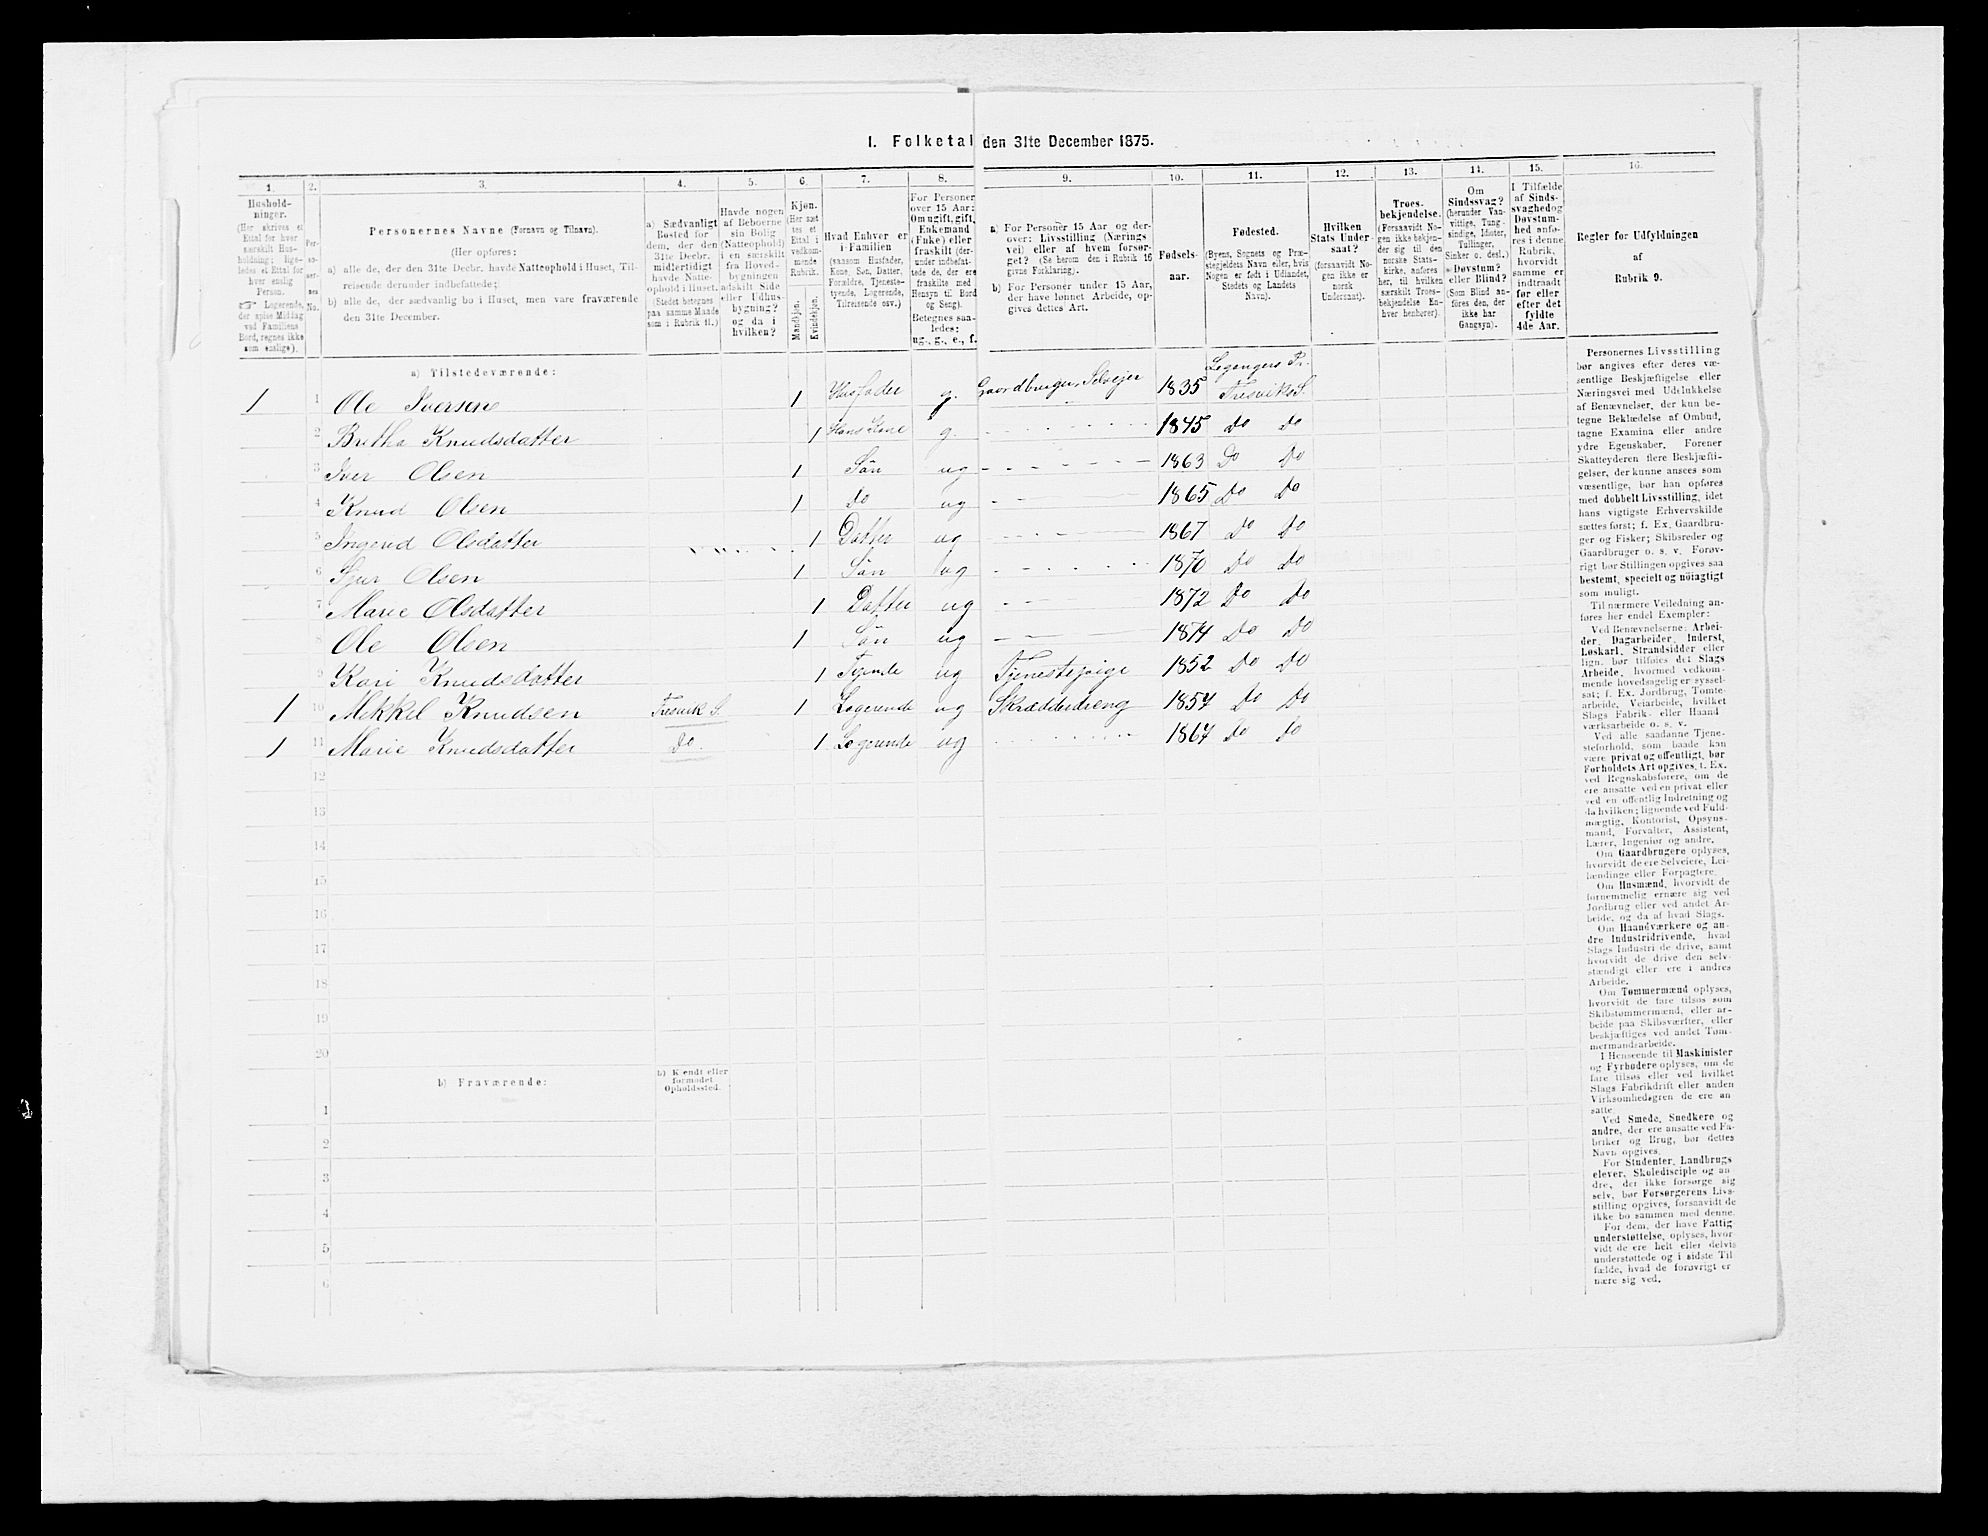 I. Folketal den 31te December 1875.
1. 2. 3. 4. 5. 6. 7. 8. 9. 10. 11. 12. 13. 14. 15. 16.
Husholdninger.
(Her skrives et
Ettal for hver
særskilt Husholdning;
ligeledes et Ettal for
hver enslig
Person.
☞ Logerende,
der spise Middag
ved Familiens
Bord, regnes ikke
som enslige).
Personernes No.
Personernes Navne (Fornavn og Tilnavn).
(Her opføres:
a) alle de, der den 31te Decbr. havde Natteophold i Huset, Til-
reisende derunder indbefattede;
b) alle de, der sædvanlig bo i Huset, men vare fraværende
den 31te December.
a) Sædvanligt
Bosted for
dem, der den
31te Decbr.
midlertidigt
havde Natte-
ophold i Huset.
(Stedet betegnes
paa samme Maade
som i Rubrik 11.)
Havde nogen
af Beboerne
sin Bolig
(Natteophold)
i en særskilt
fra Hoved-
bygningen
adskilt Side
eller Udhus-
bygning?
og da i
hvilken?
Kjøn.
(Her sæt
tes et
Ettal i
vedkom-
mende
Rubrik.
Mandkjøn.
Kvindekjøn.
Hvad Enhver er
i Familien
(saasom Husfader,
Kone, Søn, Datter,
Forældre, Tjeneste-
tyende, Logerende,
Tilreisende osv.)
For Personer
over 15 Aar:
Om ugift, gift,
Enkemand
(Enke) eller
fraskilt (der-
under indbefat-
tede de, der ere
fraskilte med
Hensyn til Bord
og Seng).
Betegnes saa-
ledes:
ug., g., e., f.
a) For Personer 15 Aar og der-
over: Livsstilling (Nærings
vei) eller af hvem forsør-
get? (Se herom den i Rubrik 16
givne Forklaring).
b) For Personer under 15 Aar,
der have lønnet Arbeide, op-
gives dettes Art.
Fødsels-
aar.
Fødested.
(Byens, Sognets og Præ-
stegjeldets Navn eller, hvis
Nogen er født i Udlandet,
Stedets og Landets
Navn).
Hvilken
Stats Under-
saat?
(forsaavidt No-
gen ikke er
norsk
Undersaat).
Troes-
bekjendelse.
(Forsaavidt No-
gen ikke bekjen-
der sig til den
norske Stats-
kirke, anføres
her, til hvilken
særskilt Troes-
bekjendelse En-
hver henhører).
Om
Sindssvag?
(herunder Van-
vittige, Tung-
sindige, Idioter,
Tullinger,
Sinker o. desl.)
Døvstum?
eller Blind?
(Som Blind an-
føres den, der
ikke har
Gangsyn).
I Tilfælde
af Sinds-
svaghed og
Døvstum-
hed anfø-
res i denne
Rubrik,
hvorvidt
samme er
indtraadt
før eller
efter det
fyldte
4de Aar.
Regler for Udfyldningen
af
Rubrik 9.
a) Tilstedeværende:
1 1 Ole Iversen 1 Husfader g. Gaardbruger, Selveier 1835 Leganger P. Fresviks S.
2 Bretha Knudsdatter 1 Hans Kone g 1845 Do Do
3 Iver Olsen 1 Søn ug 1863 Do Do
4 Knud Olsen 1 do ug 1865 Do Do
5 Ingerid Olsdatter 1 Datter ug 1867 Do Do
6 Sjur Olsen 1 Søn ug 1870 Do Do
7 Marie Olsdatter 1 Datter ug 1872 Do Do
8 Ole Olsen 1 Søn ug 1874 Do Do
9 Kari Knudsdatter 1 Tyende ug Tjenestepige 1852 Do Do
1 10 Mikkel Knudsen Fresvik S. 1 Logerende ug Skrædderdreng 1857 Do Do
1 11 Marie Knudsdatter Do. 1 Logerende ug 1867 Do Do
12
13
14
15
16
17
18
19
20
b) Fraværende:
b) Kendt eller
formodet
Opholdssted.
1
2
3
4
5
6
Personernes Livsstilling
bør angives efter deres væ-
sentlige Beskjæftigelse eller
Næringsvei med Udelukkelse
af Benævnelser, der kun be-
tegne Beklædelse af Ombud,
tagne Examina eller andre
ydre Egenskaber. Forener
Skatteyderen flere Beskjæfti-
gelser, der kunne ansees som
væsentlige, bør han opføres
med dobbelt Livsstilling, idet
hans vigtigste Erhvervskilde
sættes først; f. Ex. Gaardbru-
ger og Fisker; Skibsreder og
Gaardbruger o. s. v. Forøv-
rigt bør Stillingen opgives saa
bestemt, specielt og nöiagtigt
som muligt.
Til nærmere Veiledning an-
føres her endel Exempler:
Ved Benævnelserne: Arbei-
der, Dagarbeider, Inderst,
Løskarl, Strandsidder eller
lign. bør tilføies det Slags
Arbeide, hvormed vedkom-
mende hovedsagelig er syssel-
sat; f. Ex. Jordbrug, Tomte-
arbeide, Veiarbeide, hvilket
Slags Fabrik- eller Haand
værksarbeide o. s. v.
Ved alle saadanne Tjene-
steforhold, som baade kan
være privat og offentligt, bør
Forholdets Art opgives, f. Ex.
ved Regnskabsførere, om de
ere ansatte ved en privat eller
ved en offentlig Indretning og
da hvilken; lignende ved Fuld-
mægtig, Kontorist, Opsyns-
mand, Forvalter, Assistent,
Lærer, Ingeniør og andre.
Om Gaardbrugere oplyses,
hvorvidt de ere Selveiere, Lei-
lændinge eller Forpagtere.
Om Husmænd, hvorvidt de
fornemmelig ernære sig ved
Jordbrug eller ved andet Ar-
beide, og da af hvad Slags.
Om Haandværkere og an-
dre Industridrivende, hvad
Slags Industri de drive, samt
hvorvidt de drive den selv-
stændigt eller ere i andres
Arbeide.
Om Tømmermænd oplyses,
hvorvidt de fare tilsøs som
Skibstømmermænd, eller ar-
beide paa Skibsværfter, eller
beskjæftiges ved andet Tøm-
mermandsarbeide.
I Henseende til Maskinister
og Fyrbødere oplyses, om de
fare tilsøs eller ved hvilket
Slags Fabrikdrift eller anden
Virksomhedsgren de ere an
satte.
Ved Smede, Snedkere og
andre, der ere ansatte ved Fa-
briker og Brug, bør dettes
Navn opgives.
For Studenter, Landbrugs
elever, Skoledisciple og an
dre, der ikke forsørge sig
selv, bør Forsørgerens Livs-
stilling opgives, forsaavidt de
ikke bo sammen med denne.
For dem, der have Fattig
understøttelse, oplyses, hvor
vidt de ere helt eller delvis
understøttede og i sidste Til
fælde, hvad de forøvrigt er
nære sig ved.